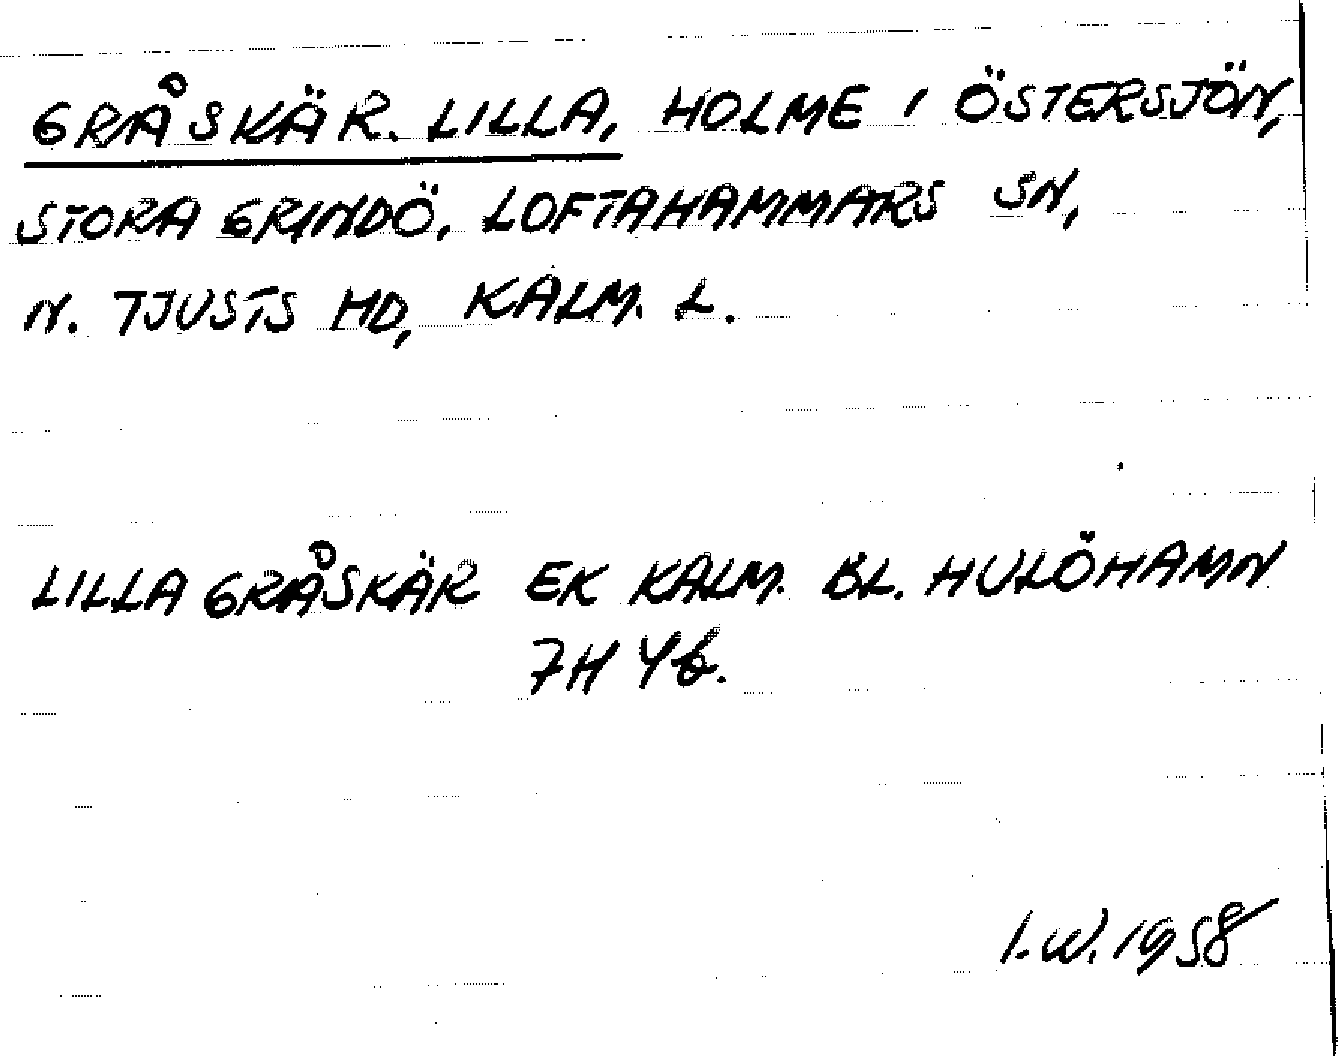 GRÅSKÄR. LILLA, HOLME I ÖSTERSJÖN,
STORA GRINDÖ, LOFTAHAMMARS SN,
N. TJUSTS HD, KALM. L.
LILLA GRÅSKÄR EK KALM. BL. HULÖHAMN
7H 4b.
I.W. 1958